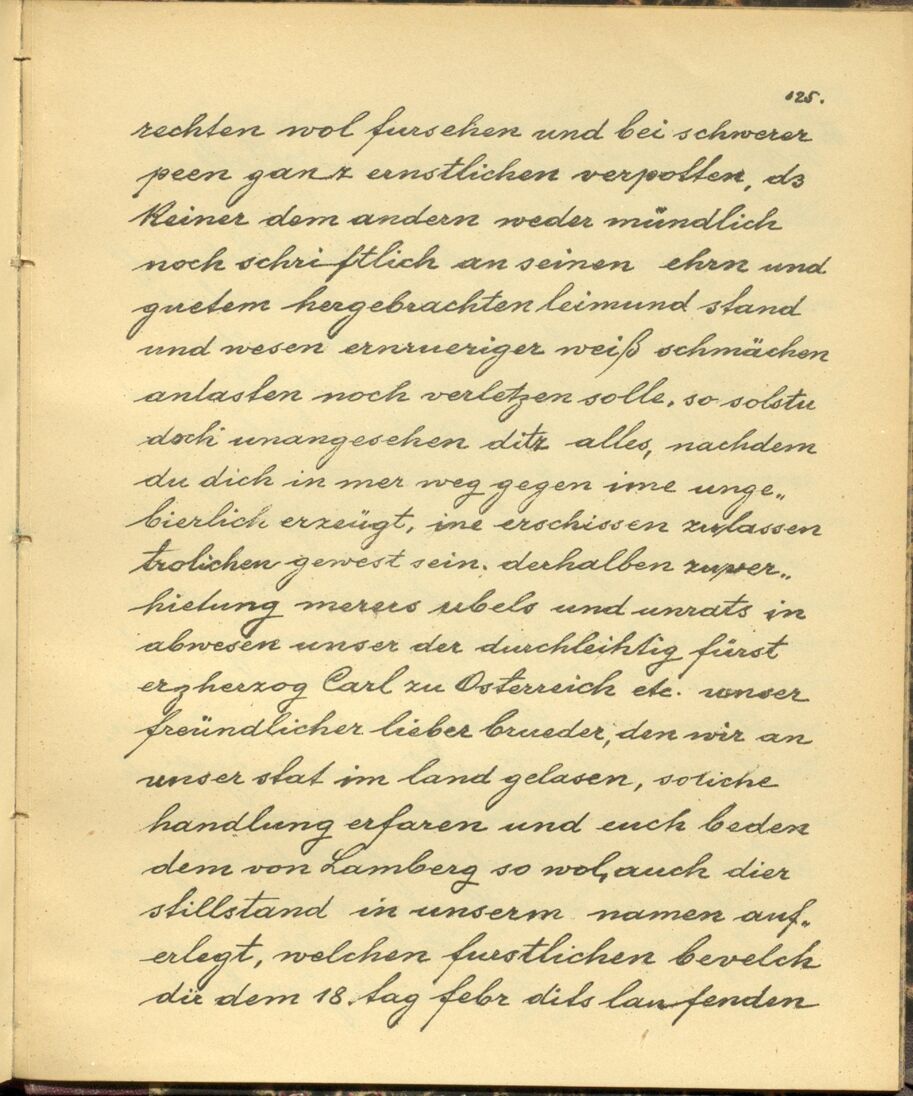 125.
rechten wol fursehen und bei schwerer
peen ganz ernstlichen verpotten, dz
keiner dem andern weder mündlich
noch schriftlich an seinen ehrn und
guetem hergebrachten leimund stand
und wesen ernrueriger weiß schmächen
antasten noch verletzen solle, so solstu
doch unangesehen ditz alles, nachdem
du dich in mer weg gegen ime unge„
bierlich erzeügt, ine erschissen zulassen
trolichen gewest sein. derhalben zuver„
hietung merers ubels und unrats in
abwesen unser der durchleihtig fürst
erzherzog Carl zu Österreich etc. unser
freündlicher lieber brueder, den wir an
unser stat im land gelasen, soliche
handlung erfaren und euch beden
dem von Lamberg so wol, auch dier
stillstand in unserm namen auf„
erlegt, welchen furstlichen bevelch
dir dem 18. tag febr dits laufenden